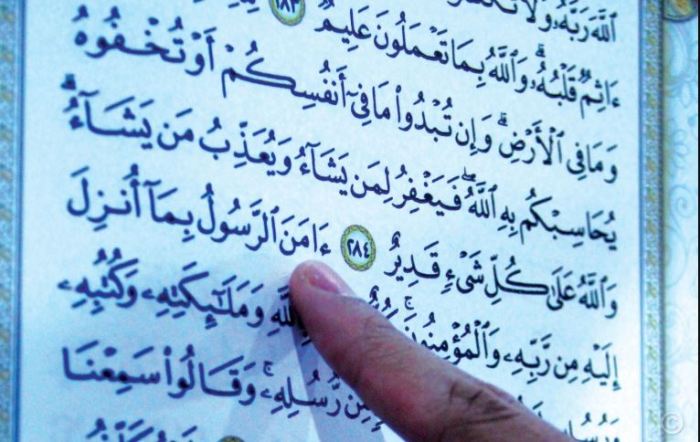 ٱللَّهَ رَبَّهُۥ وَلَا
ءَاثِمٌ قَلْبُهُۥ ۗ وَٱللَّهُ بِمَا تَعْمَلُونَ عَلِيمٌ ٢٨٣
وَمَا فِى ٱلْأَرْضِ ۗ وَإِن تُبْدُوا۟ مَا فِىٓ أَنفُسِكُمْ أَوْ تُخْفُوهُ
يُحَاسِبْكُم بِهِ ٱللَّهُ ۖ فَيَغْفِرُ لِمَن يَشَآءُ وَيُعَذِّبُ مَن يَشَآءُ ۗ
وَٱللَّهُ عَلَىٰ كُلِّ شَىْءٍ قَدِيرٌ ٢٨٤ ءَامَنَ ٱلرَّسُولُ بِمَآ أُنزِلَ
إِلَيْهِ مِن رَّبِّهِۦ وَٱلْمُؤْمِنُونَ ۚ وَمَلَـٰٓئِكَتِهِۦ وَكُتُبِهِۦ
مِّن رُّسُلِهِۦ ۚ وَقَالُوا۟ سَمِعْنَا